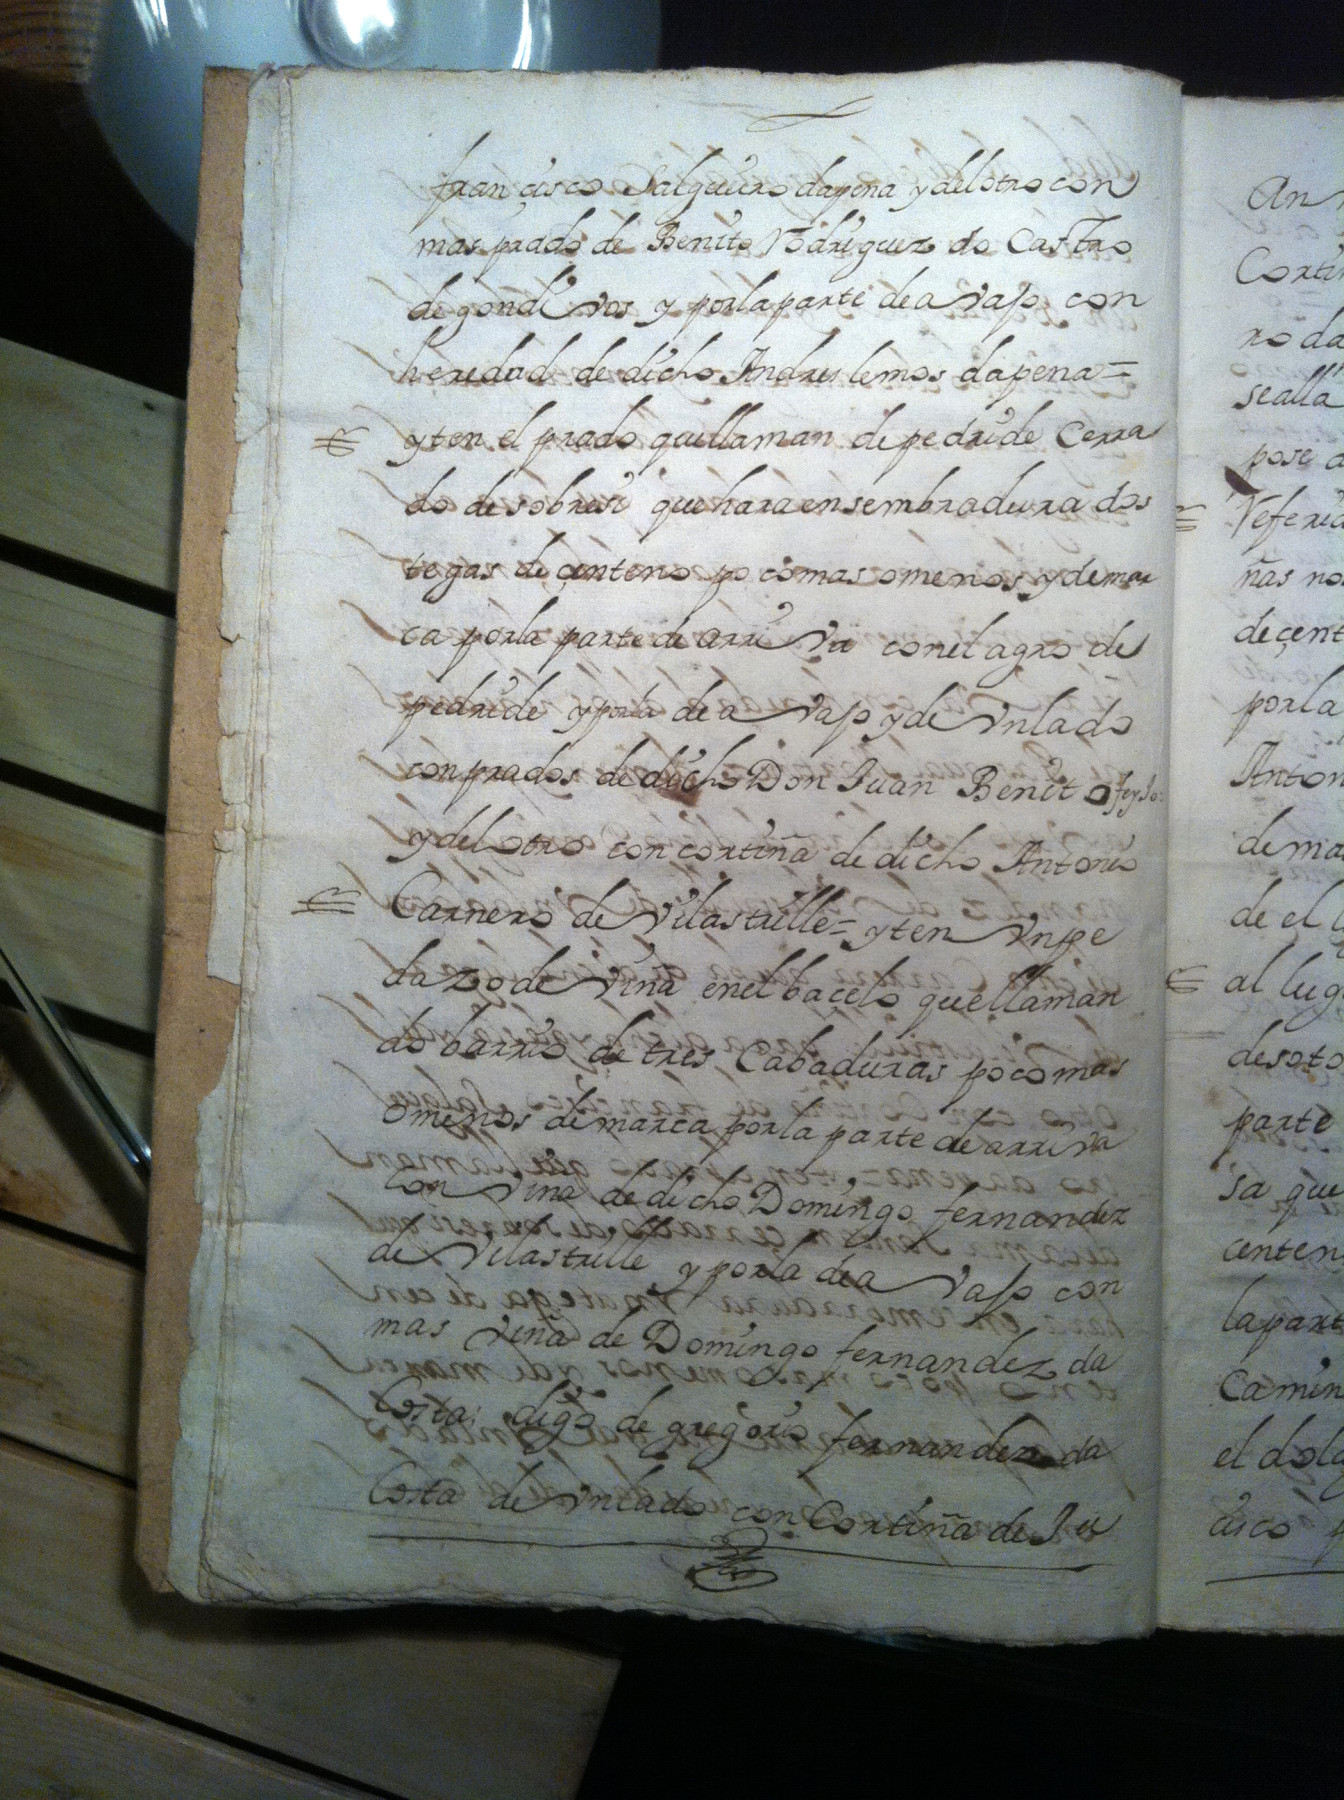 françisco Salgueiro dapena y del otro con
mas prado de Benito Rodriguez do Castro
de gondivos y por la parte de avajo con
heredad de dicho Andres lemos dapena =
yten el prado que llaman de pedride Cerra
do de sobresi que hara en sembradura dos
tegas de çenteno poco mas o menos y demar
ca por la parte de arriva con el agro de
pedride y por la de avajo y de vn lado
con prados de dicho Don Juan Benito feyJo
y del otro con cortiña de dicho Antonio
Carnero de Vilastrille = yten vn pe
dazo de viña en el baçelo que llaman
do barrio de tres Cabaduras poco mas
o menos demarca por la parte de arriva
con viña de dicho Domingo fernandez
de Vilastrille y por la de avajo con
mas viña de Domingo fernandez da
Costa digo de gregorio fernandez da
Costa de vn lado con Cortiña de Ju
An
Cortiñ
ro da
se alla
pose
Referid
ñas
de çent
por la
Anton
de ma
de el
al lug
de soto
parte
sa que
centen
la part
Camin
el do
cisco